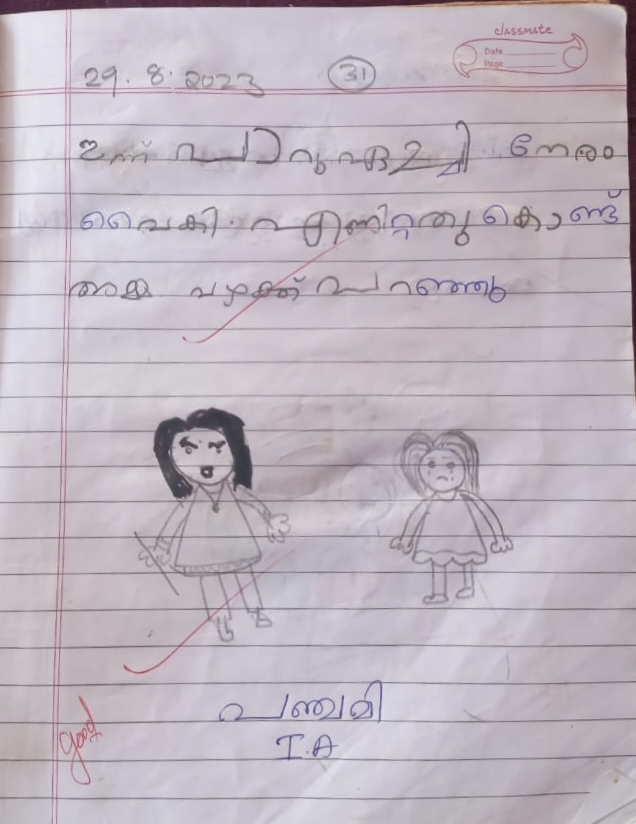 classmate
Date
Page
29.8.2023
31
ഇന്ന് പാറുഏച്ചി നേരം
വൈകി. എണിറ്റതു കൊണ്ട്
അമ്മ വഴക്ക് പറഞ്ഞു
പഞ്ചമി
I.A
good